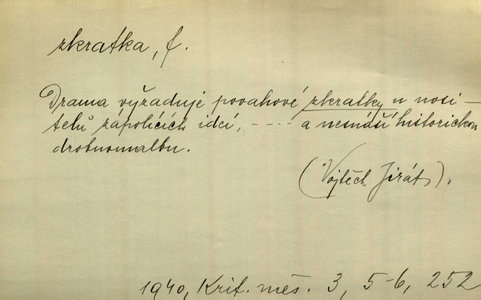 zkratka, f.
Drama vyžaduje povahové zkratky u nosi-
telů zápolících idejí, ---- a nemáší historickou
drobnomalbu.
(Vojtěch Jirát).
1940, Krit. měs. 3, 5-6, 252